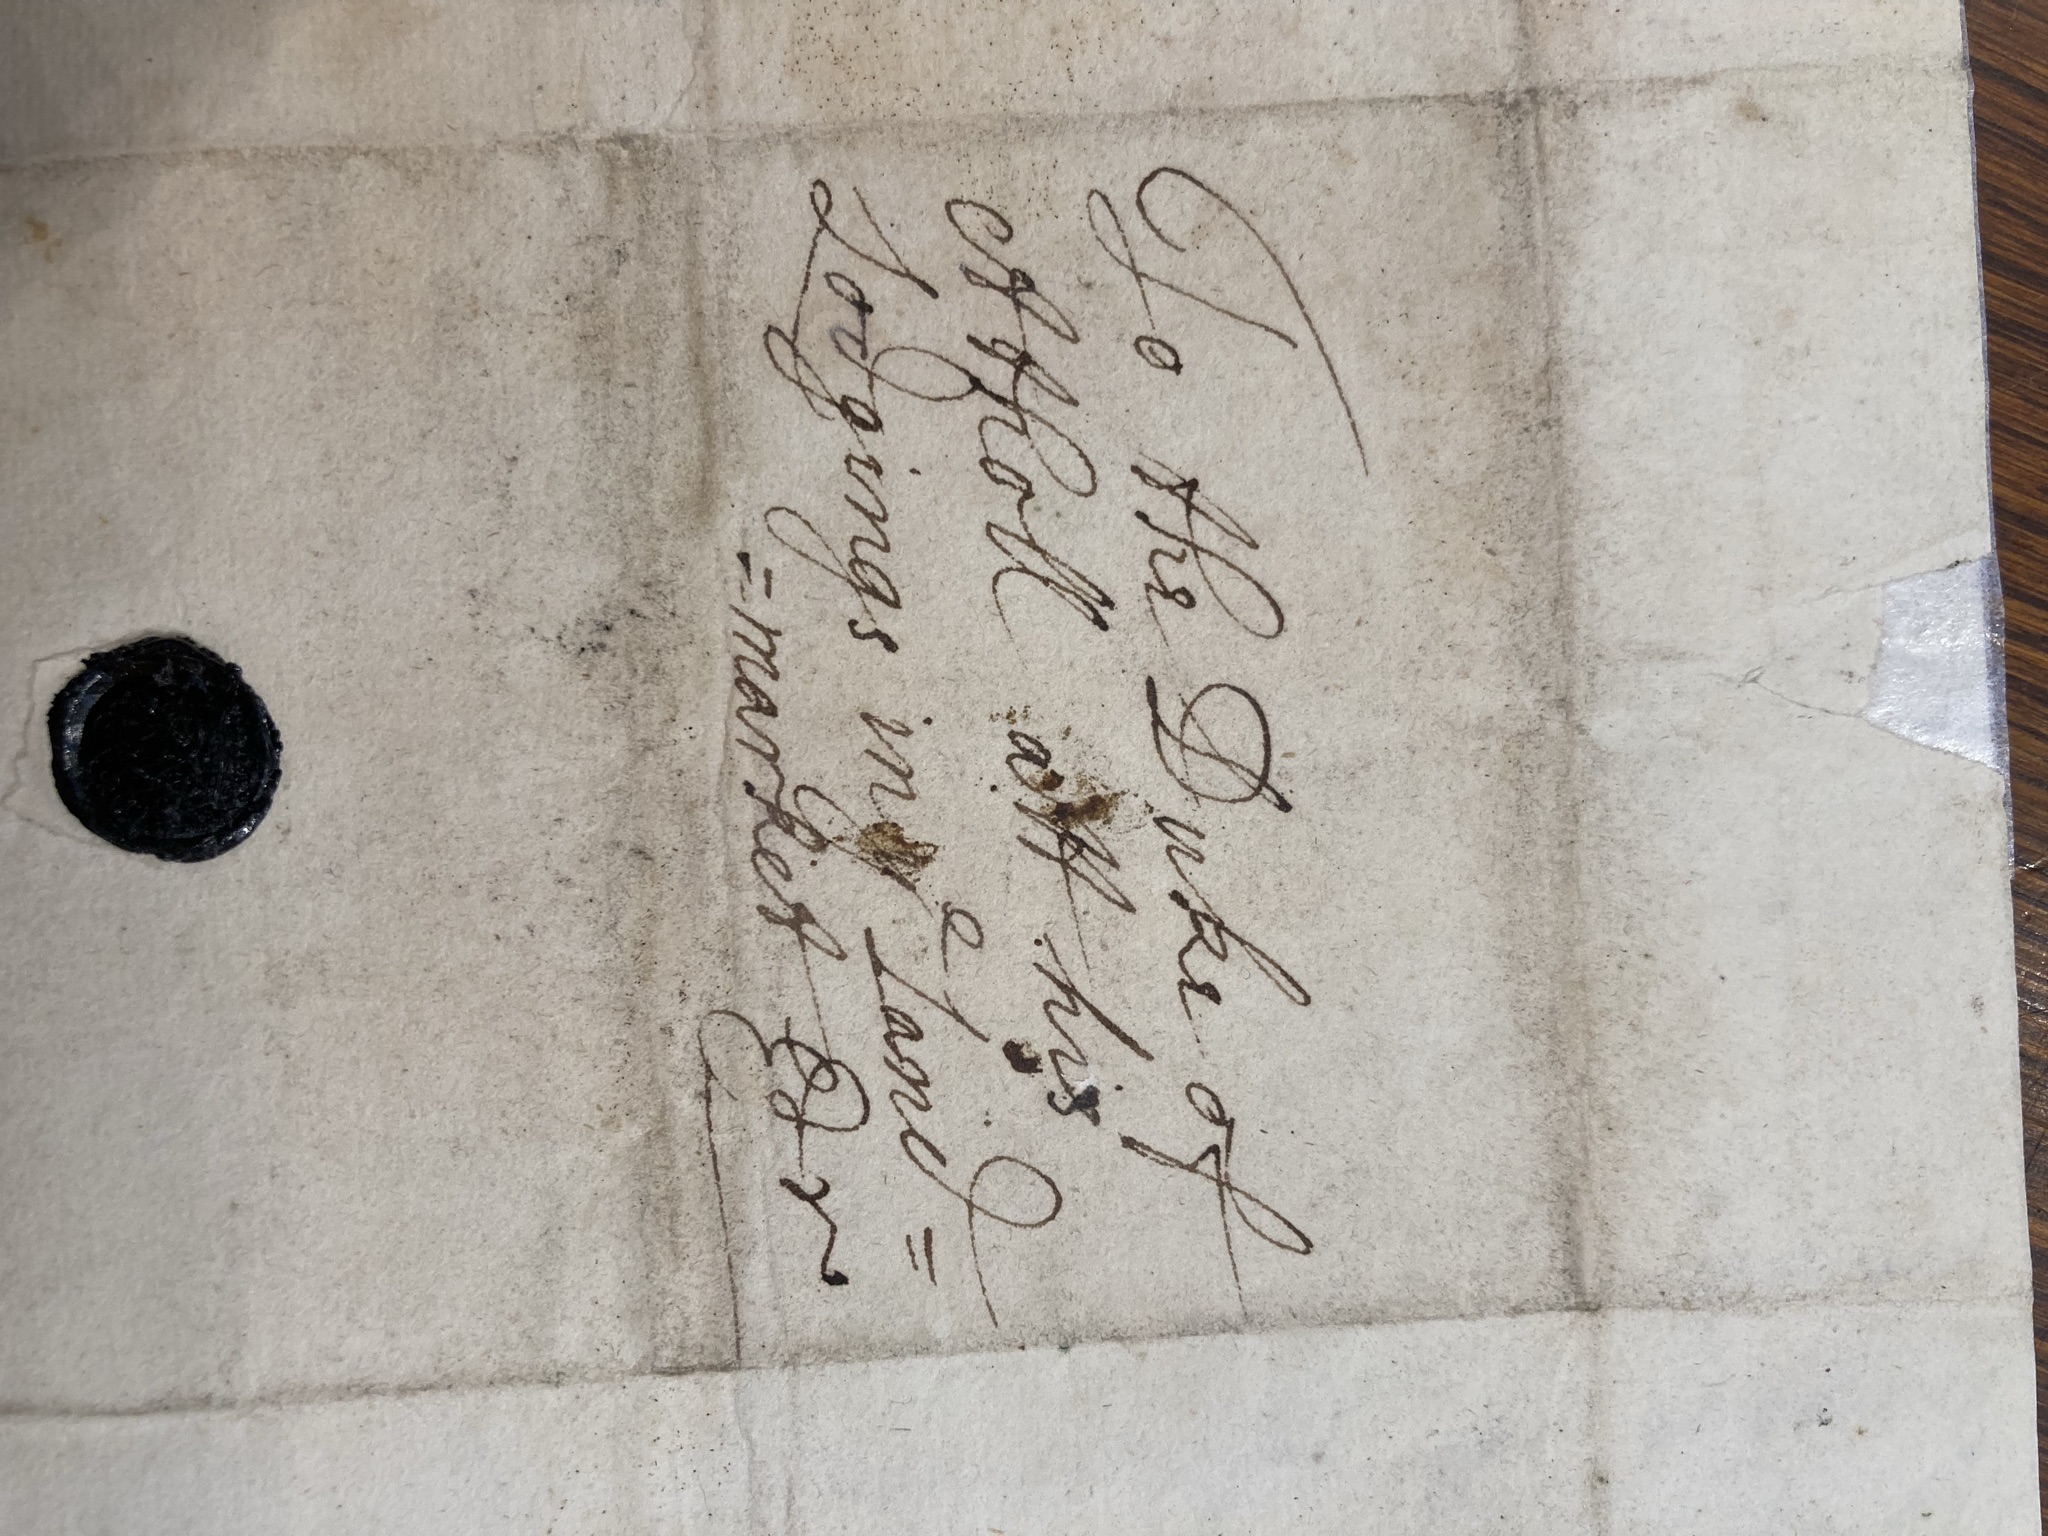 To the Duke of
Atholl att his
Lodgings in yᵉ Land=
=market Edr